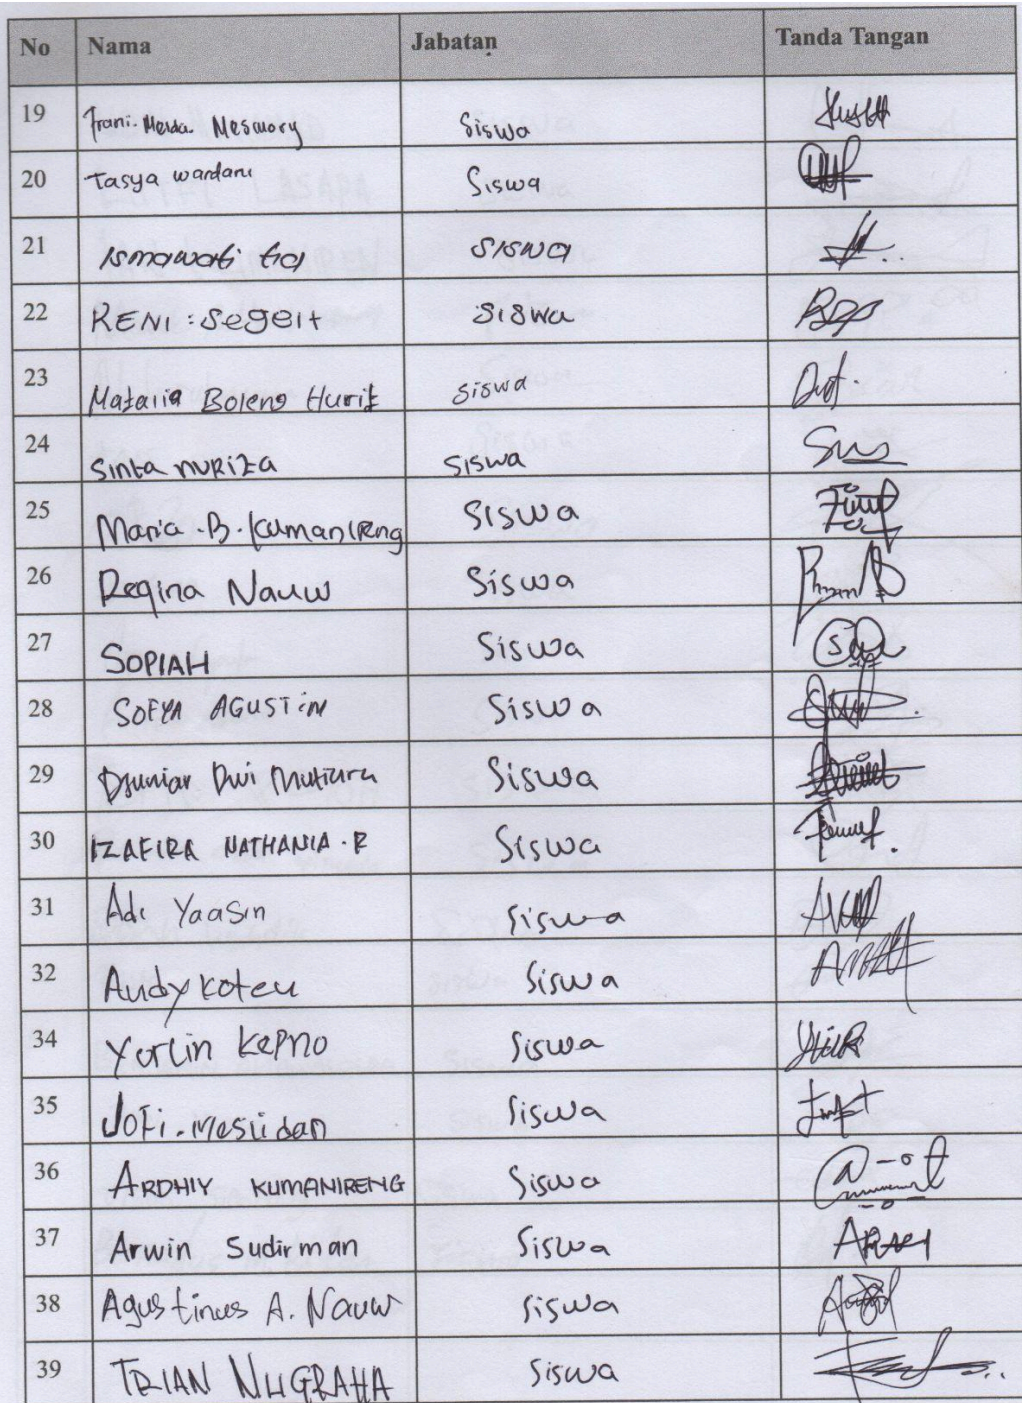 No Nama Jabatan Tanda Tangan
19 Frani. Merda. Mesmory Siswa
20 Tasya wardani Siswa
21 Ismawati tia SISWA
22 RENI : Segeit SISWa
23 Matalia Boleng Hurit siswa
24 Sinta NURIZA SISWa
25 Maria .B. Kumanireng SISWa
26 Regina Nauw Siswa
27 SOPIAH Siswa
28 SOFYA AGUSTIN Siswa
29 Djuniar Dwi Mutiara Siswa
30 IZAFIRA NATHANIA . R Siswa
31 Adi Yaasin Siswa
32 Audy Koten Siswa
34 Yerlin Kepno Siswa
35 Jofi . Mesiidan Siswa
36 ARDHIY KUMANIRENG Siswa
37 Arwin Sudirman Siswa
38 Agustinus A. Nauw Siswa
39 TRIAN NUGRAHA Siswa